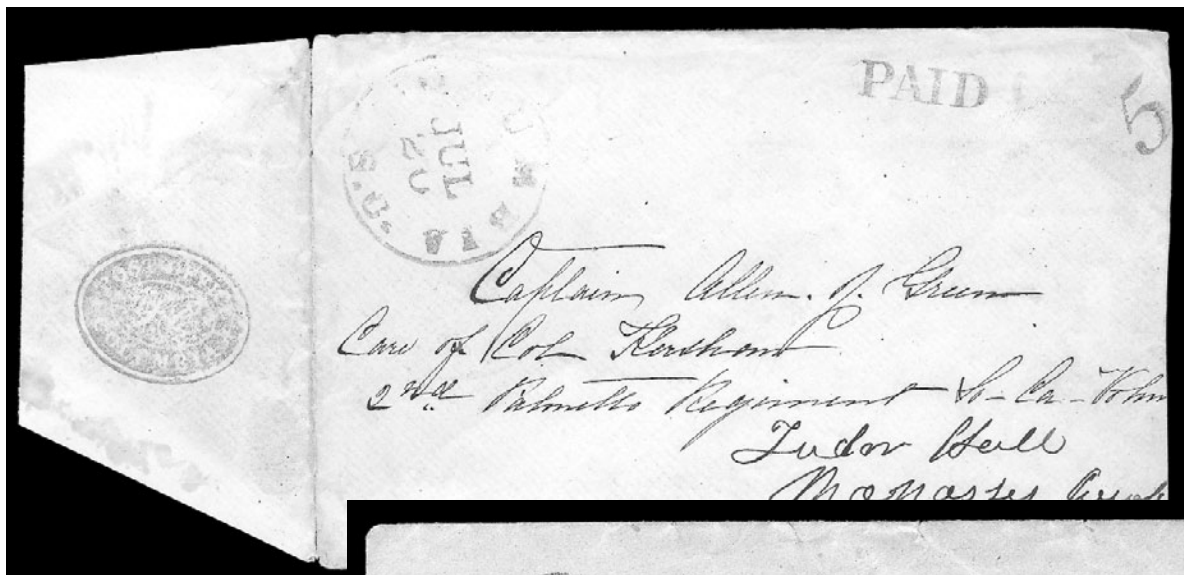 PAID 5
COLUMBIA S.C.
JUL
20
Captain Allen. J. Green
Care of Col Kershaw
2nd Palmetto Regiment So-Ca-Vols
Tudor Hall
Manasses